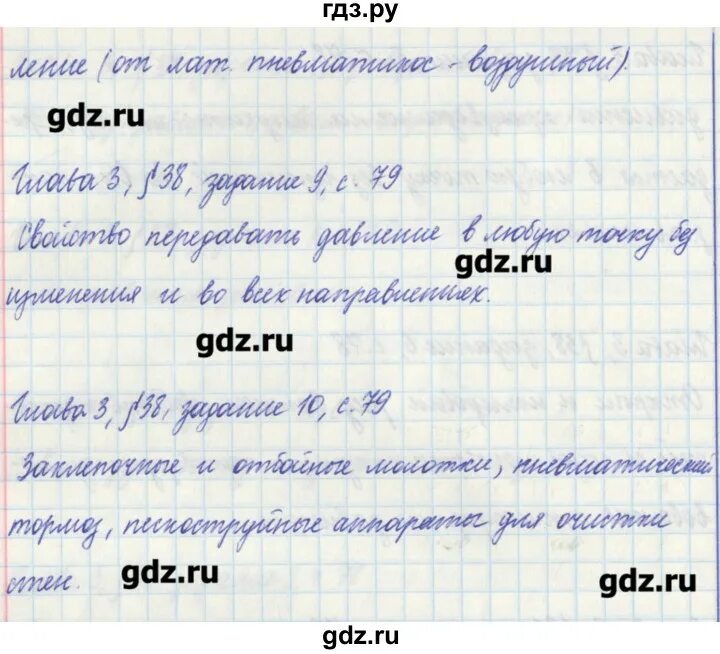 гдз.ру
ление (от лат. пневматикос - воздушный).
gdz.ru
Глава 3, §38, задание 9, с. 79
Свойство передавать давление в любую точку без
gdz.ru
изменения и во всех направлениях.
gdz.ru
Глава 3, §38, задание 10, с. 79
Заклепочные и отбойные молотки, пневматический
тормоз, пескоструйные аппараты для очистки
стен.
gdz.ru
gdz.ru
gdz.ru